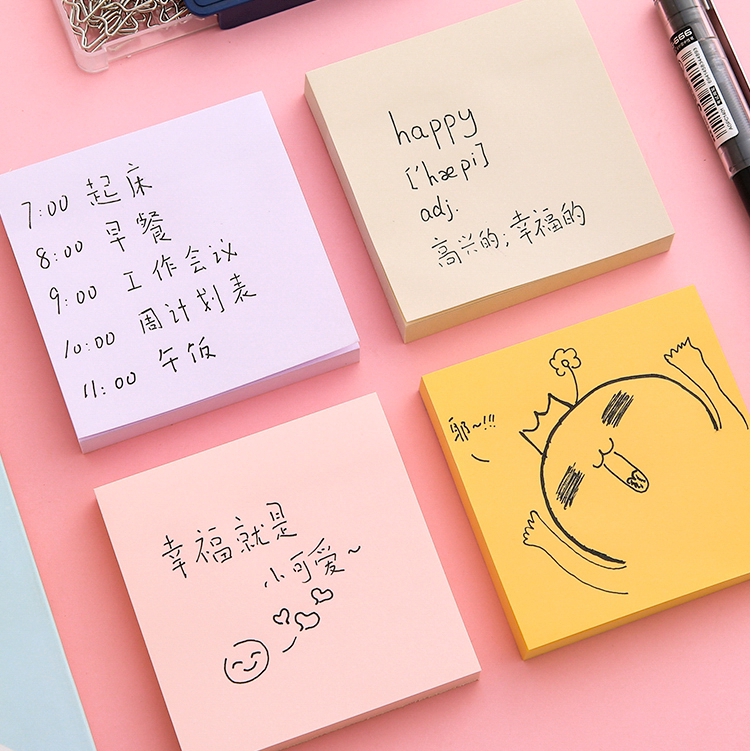 7:00 起床
8:00 早餐
9:00 工作会议
10:00 周计划表
11:00 午饭
happy
['hæpi]
adj.
高兴的; 幸福的
幸福就是
小可爱~
耶~!!!